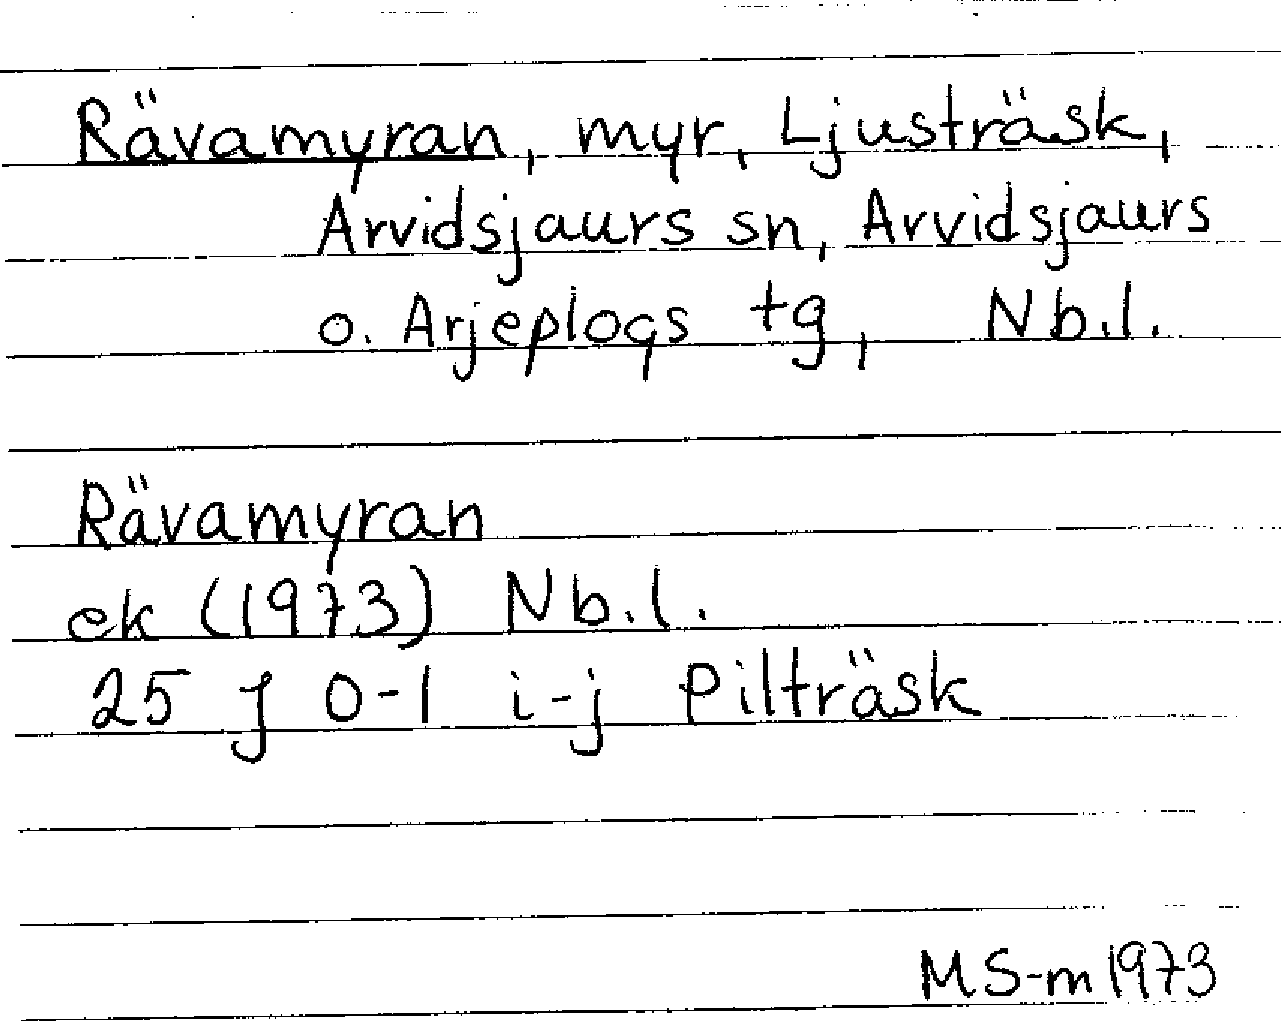 Rävamyran, myr, Ljusträsk,
Arvidsjaurs sn, Arvidsjaurs
o. Arjeplogs tg, Nb.l.
Rävamyran
ek (1973) Nb.l.
25 J 0-1 i-j Pilträsk
MS-m 1973